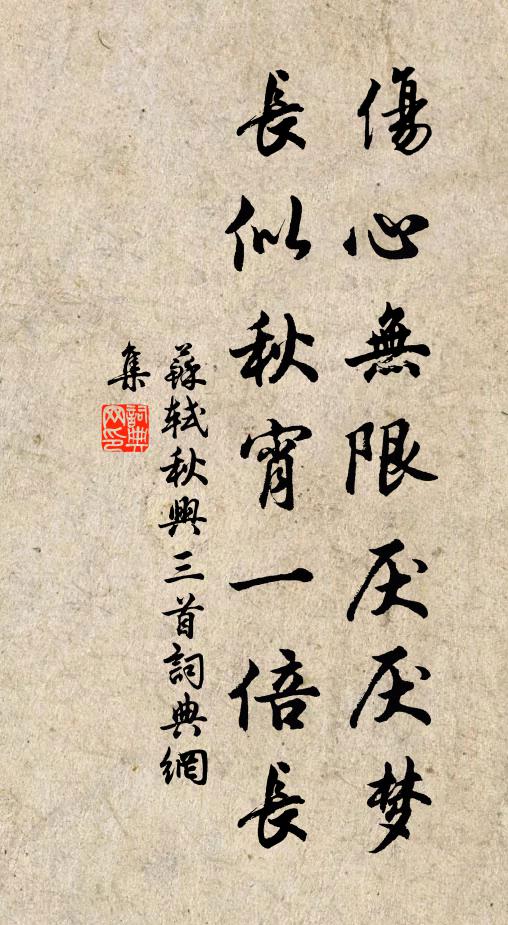 傷心無限厌厌梦
長似秋宵一倍長
蘇轼秋興三首詞典網
集
詞典
网印